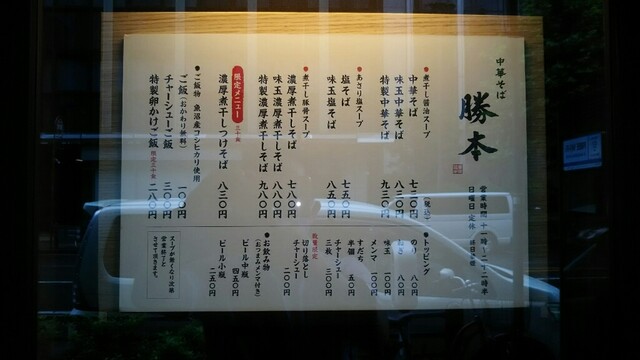 中華そば
勝本
営業時間 十一時〜二十二時半
日曜日定休
●煮干し醤油スープ
中華そば 七三〇円(税込)
味玉中華そば 八三〇円
特製中華そば 九三〇円
●あさり塩スープ
塩そば 七五〇円
味玉塩そば 八五〇円
●煮干し豚骨スープ
濃厚煮干しそば 七八〇円
味玉濃厚煮干しそば 八八〇円
特製濃厚煮干しそば 九八〇円
限定メニュー
濃厚煮干しつけそば 八三〇円
●ご飯物 魚沼産コシヒカリ使用
ご飯(おかわり無料) 一〇〇円
チャーシューご飯 三〇〇円
特製卵かけご飯 限定二十食 二八〇円
●トッピング
のり 八〇円
八〇円
味玉 一〇〇円
メンマ 一〇〇円
すだち
半個 五〇円
チャーシュー
三枚 三〇〇円
数量限定
切り落とし
チャーシュー
二〇〇円
●お飲み物
(おつまみメンマ付き)
ビール中瓶 四五〇円
ビール小瓶 二五〇円
スープが無くなり次第
営業終了と
させて頂きます。